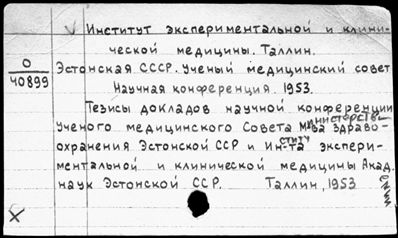 Институт экспериментальной и клини-
ческой медицины. Таллин.
О
40899
Эстонская СССР. Ученый медицинский совет
Научная конференция. 1953.
Тезисы докладов научной конференции
Ученого медицинского Совета Министерства Здраво-
охранения Эстонской ССР и Института экспери-
ментальной и клинической медицины Акад.
наук Эстонской ССР. Таллин, 1953